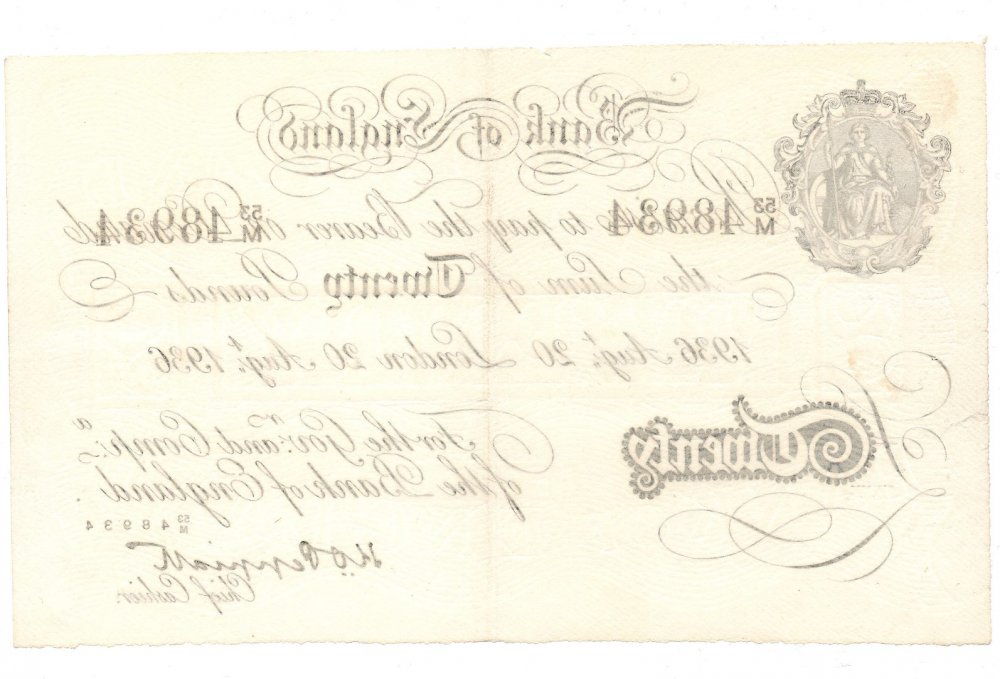 Bank of England
53 M 48934 53 M 48934
Promise to pay the Bearer on Demand
the Sum of Twenty Pounds
1936 Augt. 20 London 20 Augt. 1936
For the Govr. and Compa.
of the Bank of England.
Twenty
53 M 48934
K.O. Peppiatt
Chief Cashier.